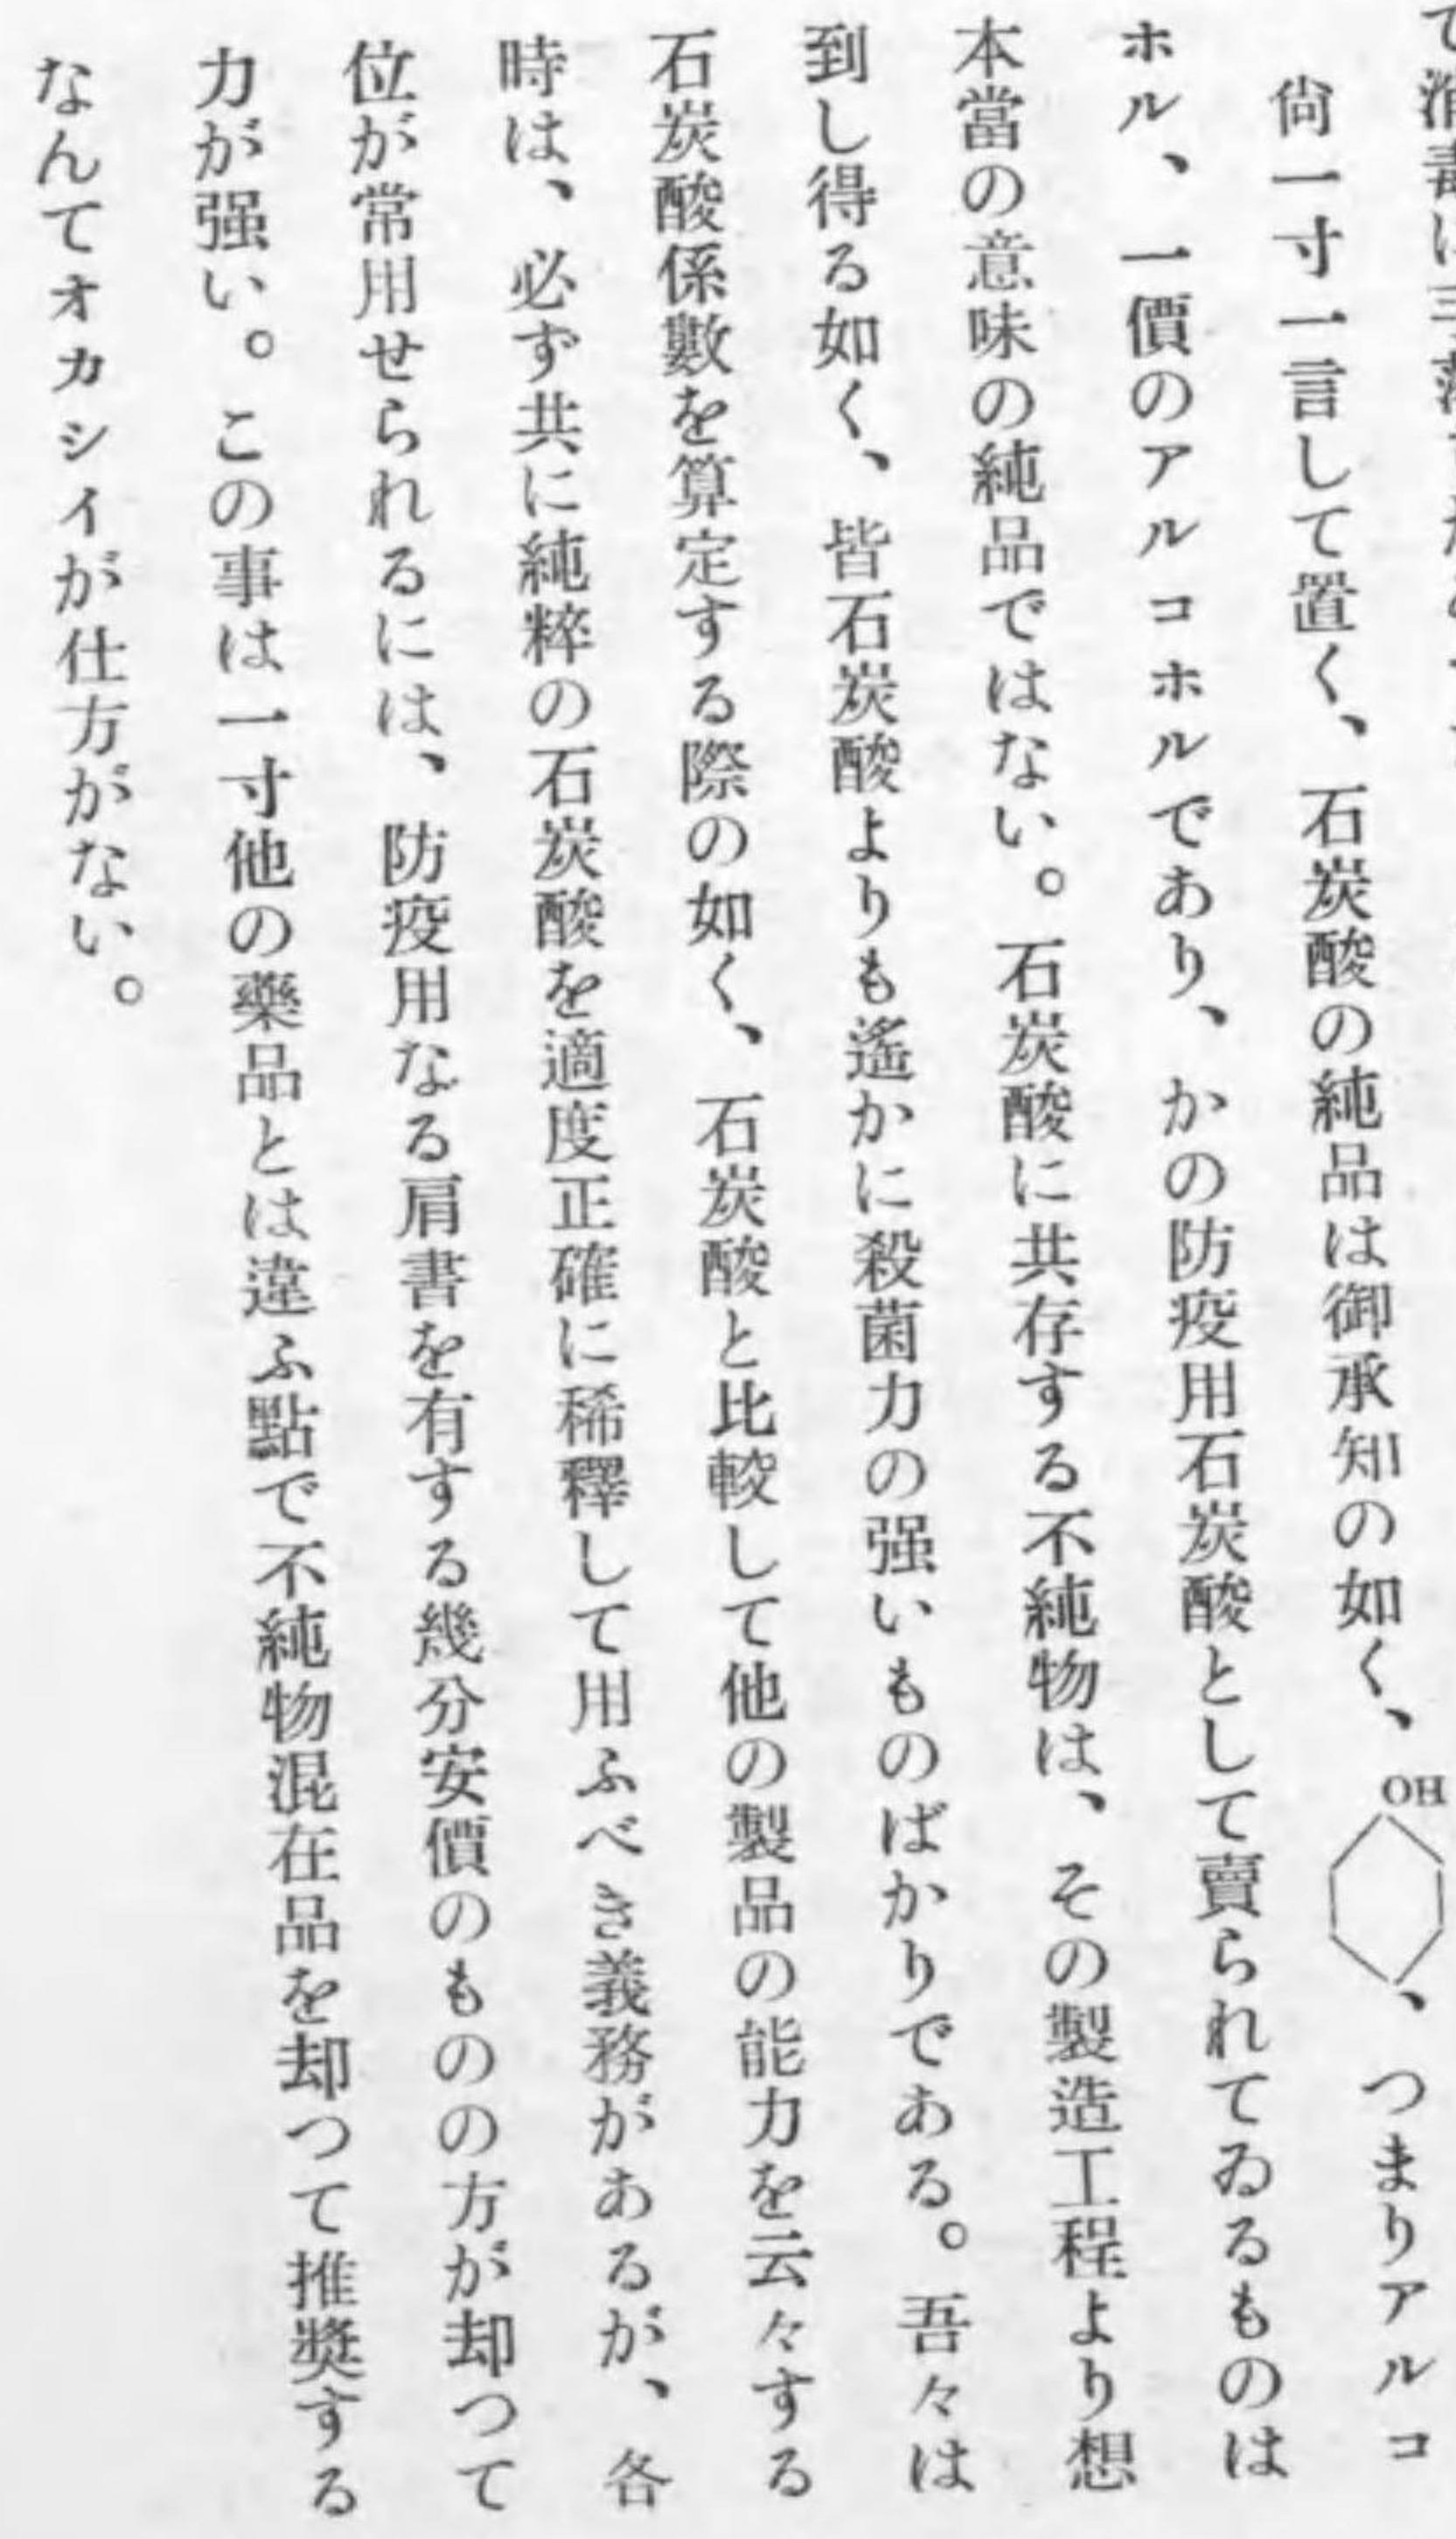 尙一寸一言して置く、石炭酸の純品は御承知の如く、OH、つまりアルコ
ホル、一價のアルコホルであり、かの防疫用石炭酸として賣られてゐるものは
本當の意味の純品ではない。石炭酸に共存する不純物は、その製造工程より想
到し得る如く、皆石炭酸よりも遙かに殺菌力の强いものばかりである。吾々は
石炭酸係數を算定する際の如く、石炭酸と比較して他の製品の能力を云々する
時は、必ず共に純粹の石炭酸を適度正確に稀釋して用ふべき義務があるが、各
位が常用せられるには、防疫用なる肩書を有する幾分安價のものの方が却つて
力が强い。この事は一寸他の藥品とは違ふ點で不純物混在品を却つて推奬する
なんてオカシイが仕方がない。